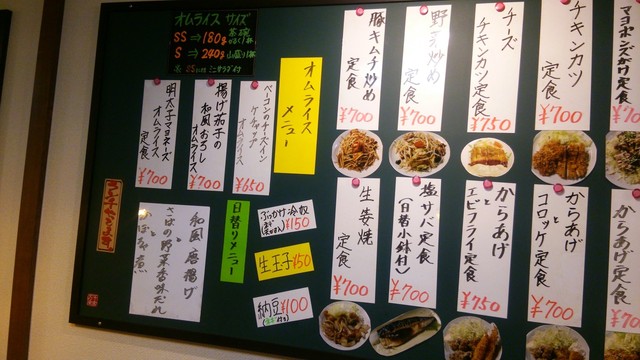 オムライス サイズ
SS ⇒ 180g
S ⇒ 240g
オムライス
メニュー
明太子マヨネーズ
オムライス 定食
¥700
揚げ茄子の
和風おろし
オムライス
¥700
ベーコンのチーズイン
ケチャップ
オムライス
¥650
豚キムチ炒め
定食
¥700
野菜炒め
定食
¥700
チーズ
チキンカツ定食
¥750
チキンカツ
定食
¥700
マヨポンズがけ
定食
日替りメニュー
和風唐揚げ
と
さばの野菜香味だれ
ぶっかけ冷奴
¥150
生玉子¥50
納豆¥100
生姜焼
定食
¥700
塩サバ定食
(日替小鉢付)
¥700
からあげ
と
エビフライ定食
¥750
からあげ
と
コロッケ定食
¥700
からあげ
定食